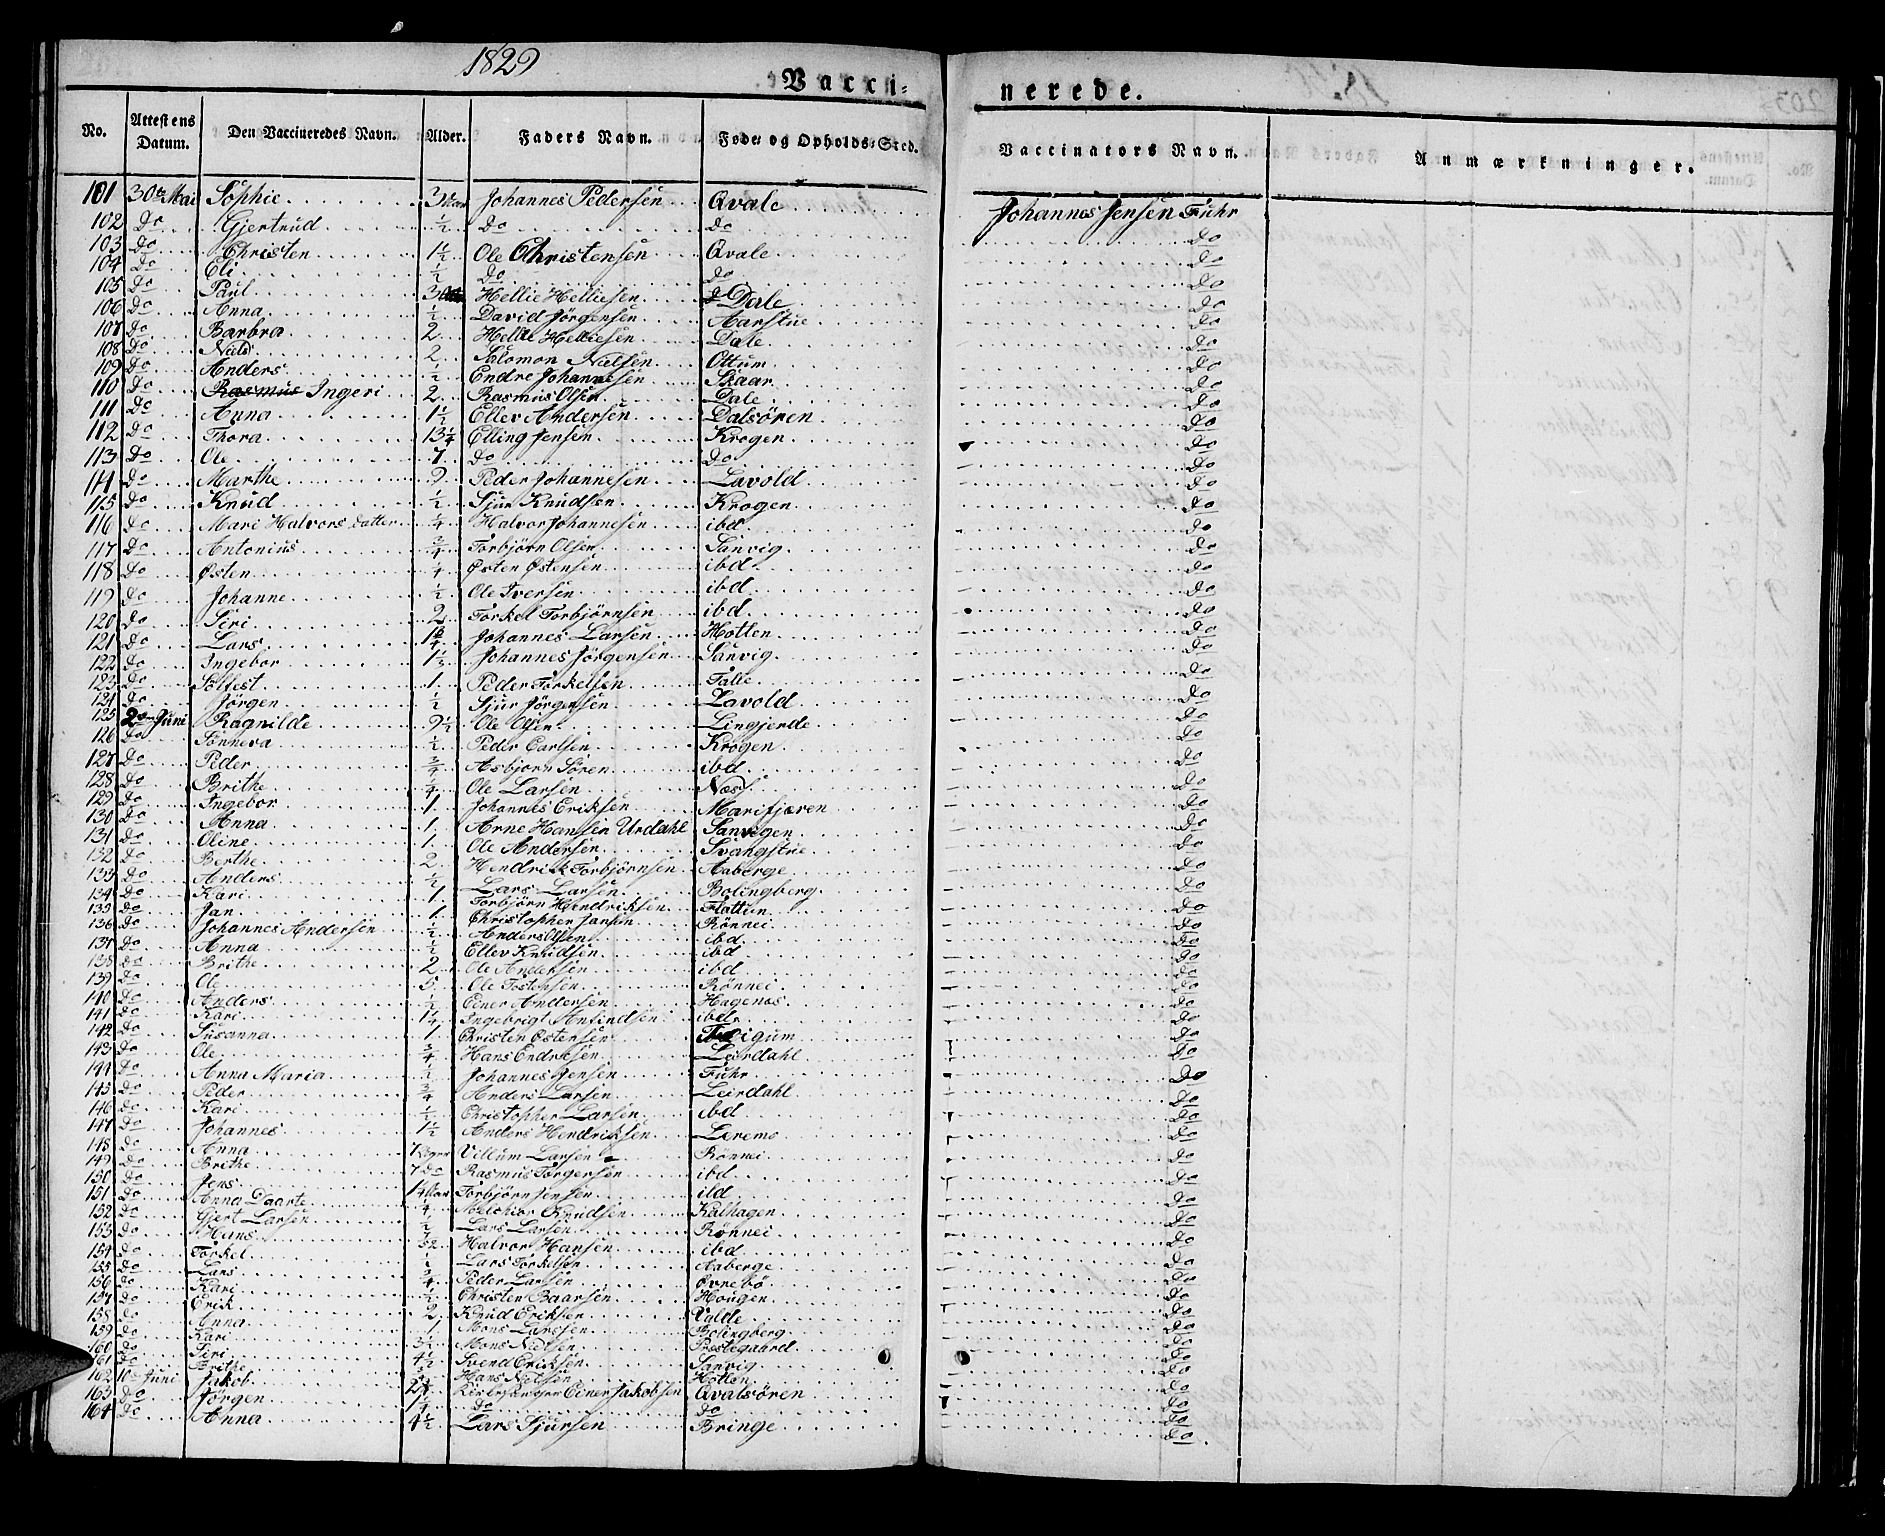 1829
Vacci-
nerede.
203
No. Attestens Datum. Den Vaccineredes Navn. Alder. Faders Navn. Føde- og Opholds-Sted. Vaccinators Navn. Anmærkninger.
101 30te Mai Sophie 3 Johannes Pedersen Qvale Johannes Jensen Fuhr
102 Do Gjertrud 1/2 Do Do Do
103 Do Christen 1 1/2 Ole Christensen Qvale Do
104 Do Eli 1/2 Do Do Do
105 Do Paul 3 Hellie Helliesen Dale Do
106 Do Anna 1/2 David Jörgensen Aarstue Do
107 Do Barbra 2 Hellie Helliesen Dale Do
108 Do Niels 2 Salomon Nielsen Ottum Do
109 Do Anders 1/2 Endre Johannesen Skaar Do
110 Do Rasmus Ingeri 2 Rasmus Olsen Dale Do
111 Do Anna 1 1/2 Ellev Andersen Dalsören Do
112 Do Thora 13 1/4 Elling Jensen Krogen Do
113 Do Ole 7 Do Do Do
114 Do Marthe 2 Peder Johannesen Lavold Do
115 Do Knud 1/2 Sjur Knudsen Krogen Do
116 Do Mari Halvors datter 1/4 Halvor Johannesen ibd Do
117 Do Antonius 3/4 Torbjörn Olsen Sanvig Do
118 Do Østen 1/4 Østen Østensen ibd Do
119 Do Johanne 1/2 Ole Iversen ibd Do
120 Do Siri 2 Torkel Torbjörnsen ibd Do
121 Do Lars Johannes Larsen Hotten Do
122 Do Ingebor 1 1/2 Johannes Jörgensen Sanvig Do
123 Do Sölfest 1 Peder Torkelsen Talle Do
124 Do Jörgen 1/2 Sjur Jörgensen Lavold Do
125 2 Juni Ragnilde 9 1/2 Ole Olsen Lingjerde Do
126 Do Sönneva 1/2 Peder Carlsen Krogen Do
127 Do Peder 3/4 Asbjorn Sören ibd Do
128 Do Brithe 1/4 Ole Larsen Næs Do
129 Do Ingebor 1 Johannes Eriksen Marifjæren Do
130 Do Anna 1 Arne Hansen Urdahl Sanvigen Do
131 Do Oline 1 Ole Andersen Svangstue Do
132 Do Berthe 2 Hendrik Torbjörnsen Aaberge Do
133 Do Anders 1/2 Lars Larsen Bolingberg Do
134 Do Kari 1 Torbjörn Hendriksen Flattun Do
135 Do Jan 1 Christopher Jansen Rönnei Do
136 Do Johannes Andersen 1/2 Anders Olsen ibd Do
137 Do Anna 1/2 Ellev Knudsen ibd Do
138 Do Brithe 2 Ole Andersen ibd Do
139 Do Ole 5 Ole Tostensen Rönnei Do
140 Do Anders 1/2 Einer Andersen Hagenæs Do
141 Do Kari 1 1/4 Ingebrigt Amundsen ibd Do
142 Do Susanna 1 Christen Østensen Feigum Do
143 Do Ole 3/4 Hans Endresen Leirdahl Do
144 Do Anna Maria 1/2 Johannes Jensen Fuhr Do
145 Do Peder 3/4 Anders Larsen Leirdahl Do
146 Do Kari 1/2 Christopher Larsen ibd Do
147 Do Johannes 1 1/2 Anders Hendriksen Leremo Do
148 Do Anna Villum Larsen Rönnei Do
149 Do Brithe 7 Do Rasmus Torgersen ibd Do
150 Do Jens Torbjörn Jensen ibd Do
151 Do Anna Daarte 1/4 Melchior Knudsen Kalhagen Do
152 Do Gjert Larsen 1/2 Lars Larsen Rönnei Do
153 Do Hans Halvor Hansen ibd Do
154 Do Torkel 1/2 Lars Torkelsen Aaberge Do
155 Do Lars 3/4 Peder Larsen Øvrebö Do
156 Do Kari 1/2 Christen Baarsen Hougen Do
157 Do Erik 2 Knud Eriksen Valde Do
158 Do Anna 1 Mons Larssen Bolingberg Do
159 Do Kari 3 1/2 Mons Nielsen Præstegaard Do
160 Do Siri 4 1/2 Svend Eriksen Sanvig Do
161 Do Brithe Hans Nielsen Hotten Do
162 10 Juni Jakob 2 Einer Jakobsen Qvalsören Do
163 Do Jörgen Do Do Do
164 Do Anna 4 1/2 Lars Sjursen Bringe Do